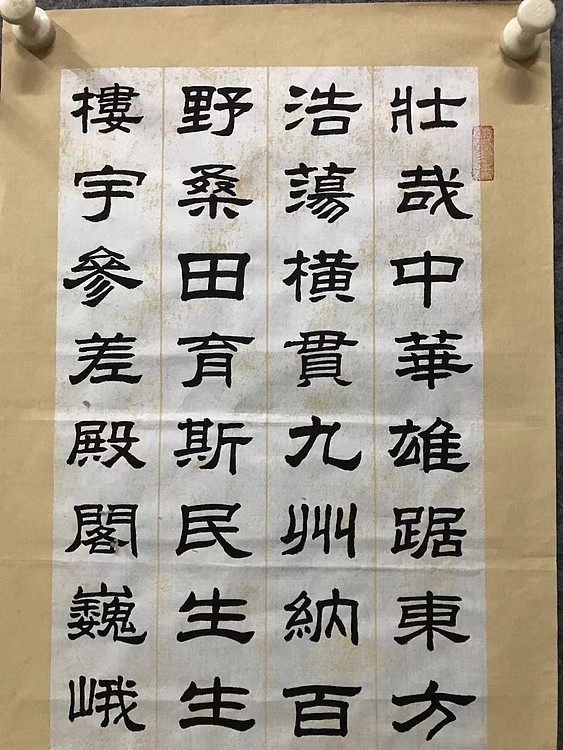 壯哉中華雄踞東方
浩蕩橫貫九州納百
野桑田育斯民生生
樓宇參差殿閣巍峨